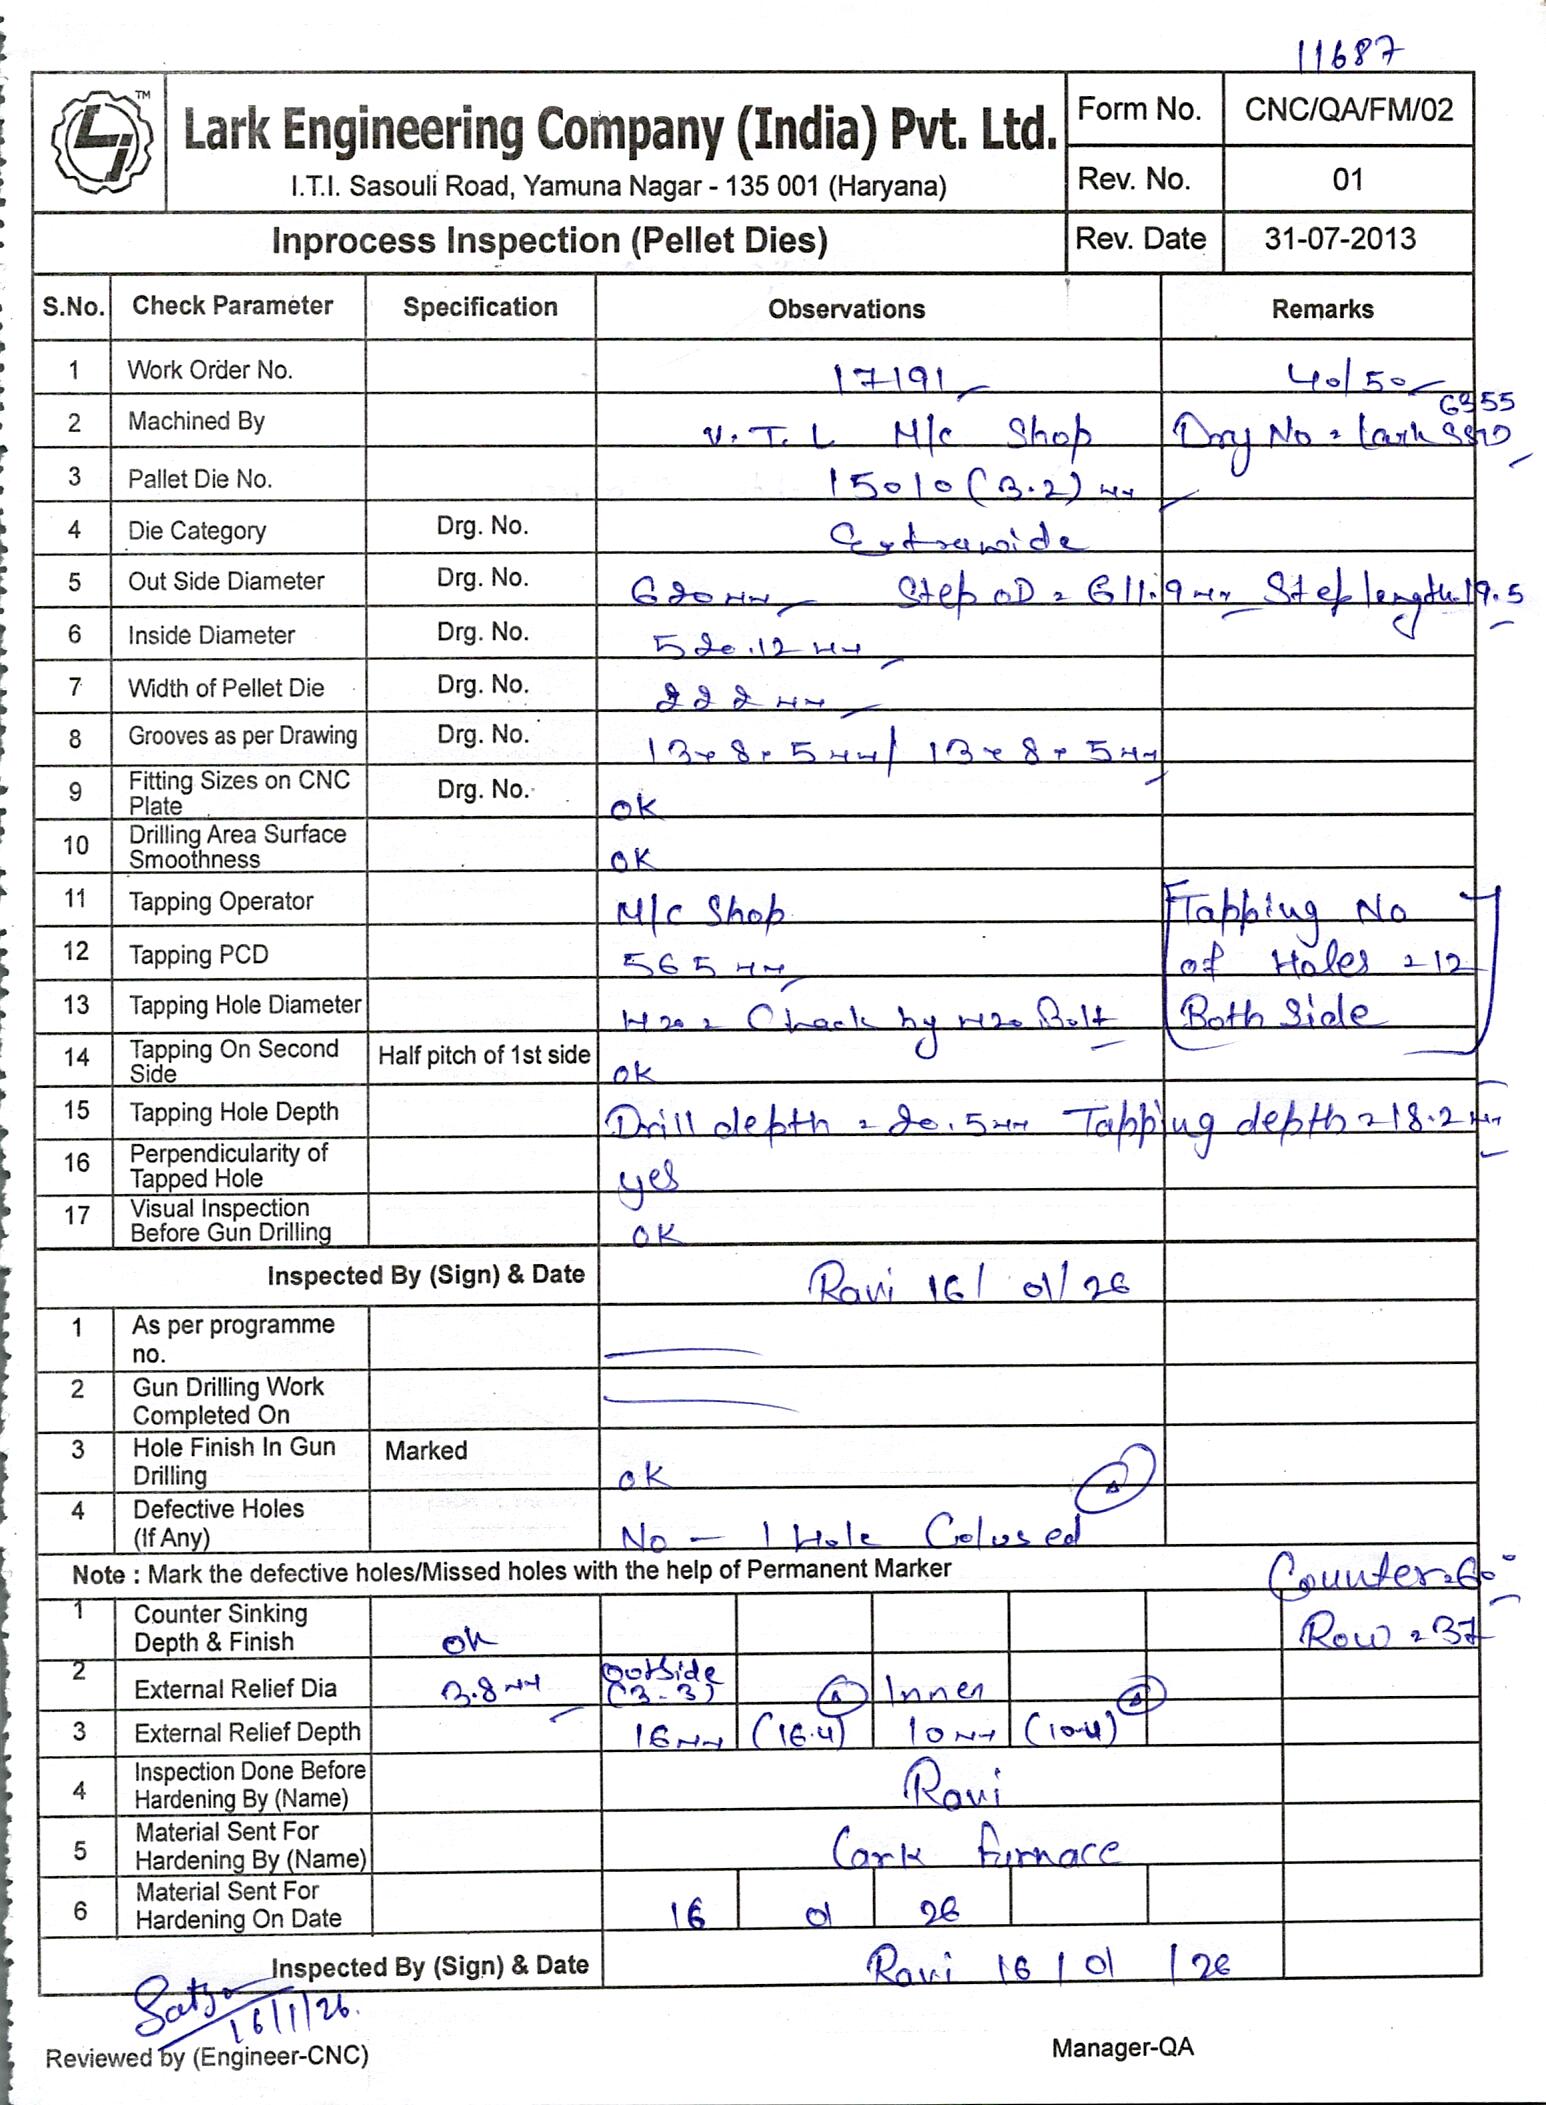 11687
TM
Lark Engineering Company (India) Pvt. Ltd.
I.T.I. Sasouli Road, Yamuna Nagar - 135 001 (Haryana)
Form No. CNC/QA/FM/02
Rev. No. 01
Inprocess Inspection (Pellet Dies) Rev. Date 31-07-2013
S.No. Check Parameter Specification Observations Remarks
1 Work Order No. 17191 40/50
2 Machined By V.T.L M/c Shop Drg No = Lark
3 Pallet Die No. 15010 (3.2) mm
4 Die Category Drg. No. Extrawide
5 Out Side Diameter Drg. No. 620 mm Step OD = 611.9 mm Step length 19.5
6 Inside Diameter Drg. No. 520.12 mm
7 Width of Pellet Die Drg. No. 222 mm
8 Grooves as per Drawing Drg. No. 13 x 8 x 5 mm / 13 x 8 x 5 mm
9 Fitting Sizes on CNC Plate Drg. No. OK
10 Drilling Area Surface Smoothness OK
11 Tapping Operator M/c Shop Tapping No
12 Tapping PCD 565 mm of Holes = 12
13 Tapping Hole Diameter M20 = Check by M20 Bolt Both Side
14 Tapping On Second Side Half pitch of 1st side OK
15 Tapping Hole Depth Drill depth = 20.5 mm Tapping depth = 18.2 mm
16 Perpendicularity of Tapped Hole yes
17 Visual Inspection Before Gun Drilling OK
Inspected By (Sign) & Date Ravi 16/01/26
1 As per programme no.
2 Gun Drilling Work Completed On
3 Hole Finish In Gun Drilling Marked OK
4 Defective Holes (If Any) No - 1 Hole Colused
Note : Mark the defective holes/Missed holes with the help of Permanent Marker Counter = 60°
1 Counter Sinking Depth & Finish OK Row = 37
2 External Relief Dia 3.8 mm Outside (3-3) Inner
3 External Relief Depth 16 mm (16.4) 10 mm (10.4)
4 Inspection Done Before Hardening By (Name) Ravi
5 Material Sent For Hardening By (Name) Lark furnace
6 Material Sent For Hardening On Date 16 01 26
Inspected By (Sign) & Date Ravi 16/01/26
16/1/26.
Reviewed by (Engineer-CNC) Manager-QA